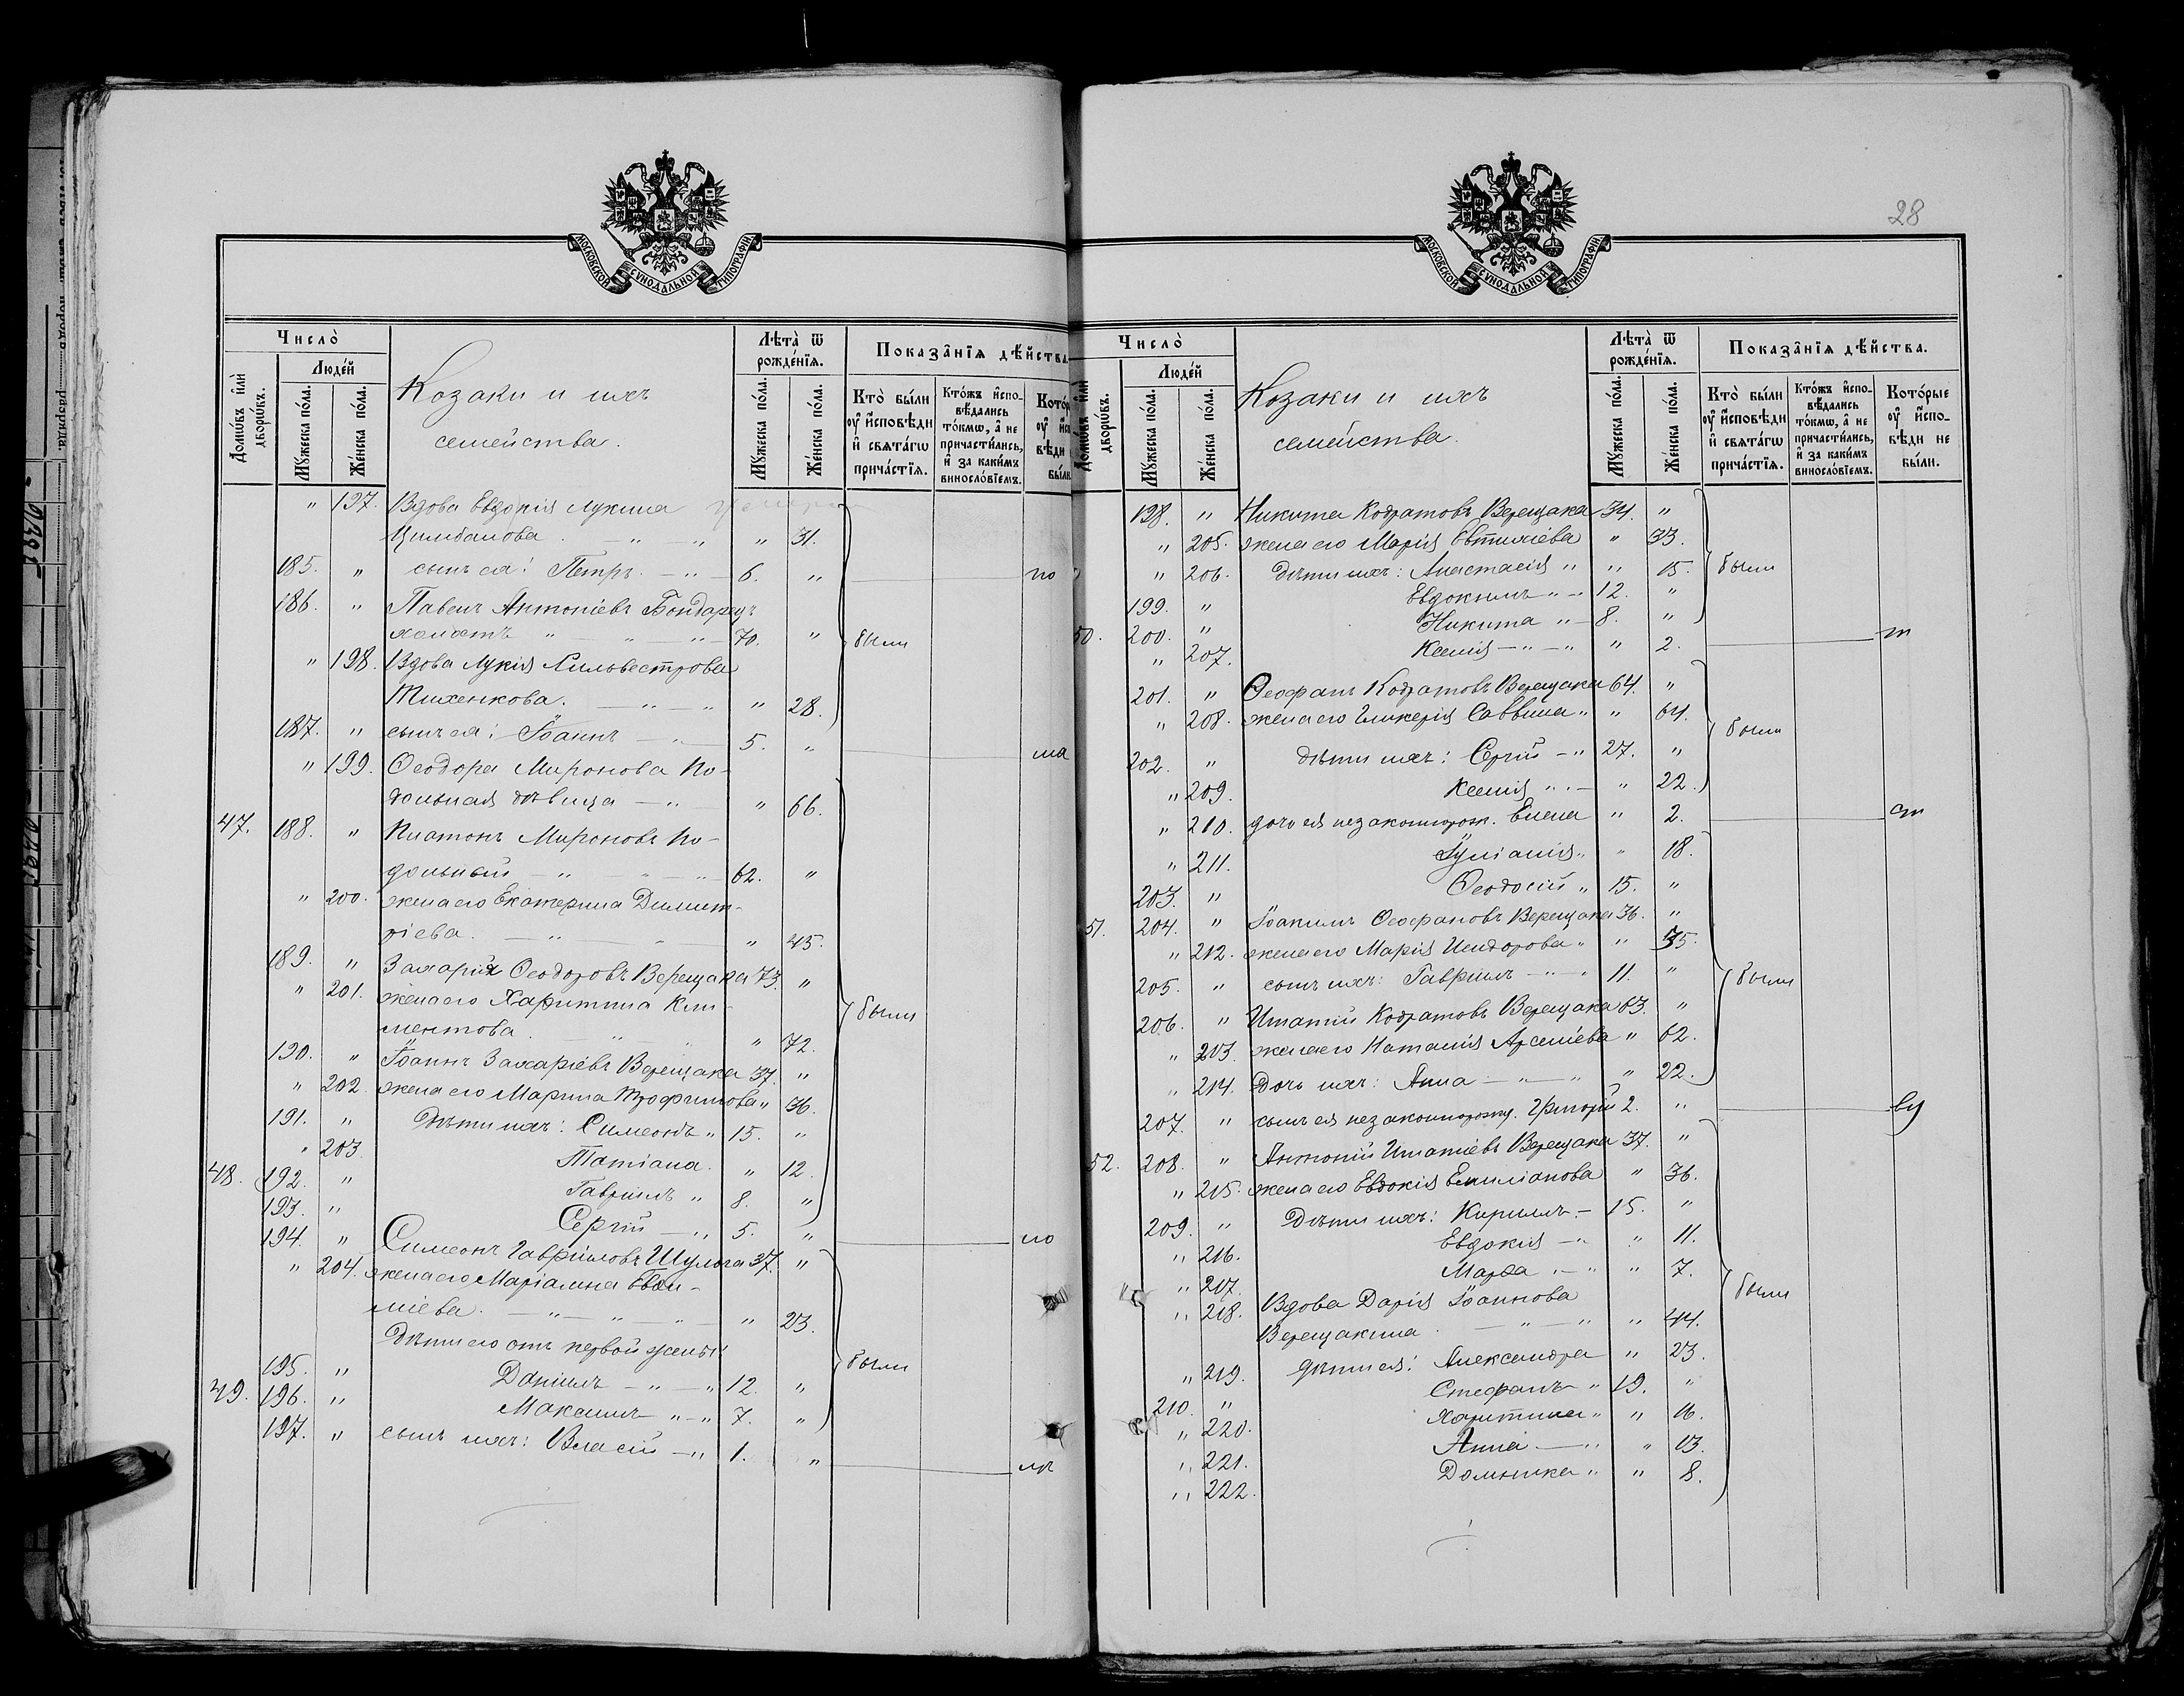 МОСКОВСКОЙ СѴНОДАЛЬНОЙ ТИПОГРАФІИ
Число̀
Домѡ́въ и҆лѝ дворѡ́въ.
Люде́й
Мꙋ́жеска по́ла.
Же́нска по́ла.
Козаки и ихъ
семейства.
Лѣ́та ѿ рожде́нїѧ.
Мꙋ́жеска по́ла.
Же́нска по́ла.
Показа̑нїѧ дѣ́йства
Кто̀ бы́ли ᲂу҆ и҆́сповѣди и҆ свѧта́гѡ прича́стїѧ.
Кто́жъ и҆спо-
вѣ́дались то́кмѡ, а҆ не причасти́лись, и҆ за каки́мъ виносло́вїемъ.
" 197. Вдова Евдокія Лукина
Цимбалова. " " " 31.
185. " сынъ ея: Петръ — " — 6. "
186. " Павелъ Антоніевъ Бондарь
холостъ " — " — " — 70. " были
" 198. Вдова Лукія Сильвестрова
Тихенкова. — " — " " 28.
187. " сынъ ея: Іоаннъ — " 5. "
" 199. Ѳеодора Миронова По-
дольная дѣвица — " — " 66.
47. 188. " Платонъ Мироновъ По-
дольный — " — " — " 62. "
" 200. жена его Екатерина Димит-
ріева. — " — " " 45.
189. " Захарія Ѳеодоровъ Верещака 73. "
" 201. жена его Харитина Кли- были
ментова. " " " 72.
190. " Іоаннъ Захаріевъ Верещака 37. "
" 202. жена его Марина Трофимова " 36.
191. " Дѣти ихъ: Симеонъ " 15. "
" 203. Татіана. " 12.
48. 192. " Гавріилъ " 8. "
193. " Сергій — " 5. "
194. " Симеонъ Гавріиловъ Шульга 37. "
" 204. жена его Маріамна Евѳи-
міева. — " — " — " " 23.
Дѣти его отъ первой жены:
195. " Даніилъ — " — " 12. " были
49. 196. " Максимъ — " — " 7. "
197. " сынъ ихъ: Власій — " 1. "
28
МОСКОВСКОЙ СѴНОДАЛЬНОЙ ТИПОГРАФІИ
Число̀
Люде́й
Мꙋ́жеска по́ла.
Же́нска по́ла.
Козаки и ихъ
семейства.
Лѣ́та ѿ рожде́нїѧ.
Мꙋ́жеска по́ла.
Же́нска по́ла.
Показа̑нїѧ дѣ́йства.
Кто̀ бы́ли ᲂу҆ и҆́сповѣди и҆ свѧта́гѡ прича́стїѧ.
Кто́жъ и҆спо-
вѣ́дались то́кмѡ, а҆ не причасти́лись, и҆ за каки́мъ виносло́вїемъ.
Кото́рые ᲂу҆ и҆́спо-
вѣди не бы́ли.
198. " Никита Кодратовъ Верещака 34. "
" 205. жена его Марія Евтихіева " 33.
" 206. дѣти ихъ: Анастасія " " 15. были
199. " Евдокимъ " — 12. "
50. 200. " Никита " — 8. "
" 207. Ксенія — " — " " 2.
201. " Ѳеофанъ Кодратовъ Верещака 64. "
" 208. жена его Гликерія Саввина " " 64.
были
202. " дѣти ихъ: Сергій — " 27. "
" 209. Ксенія " " — " 22.
" 210. дочь ея незаконнорож. Елена " 2.
" 211. Іуліанія " " 18.
203. " Ѳеодосій " 15. "
51. 204. " Іоакимъ Ѳеофановъ Верещака 36. "
" 212. жена его Марія Исидорова " " 35.
205. " сынъ ихъ: Гавріилъ — " — " 11. " были
206. " Игнатій Кодратовъ Верещака 63. "
" 213. жена его Наталія Арсеніева " 62.
" 214. Дочь ихъ: Анна — " — " " 22.
207. " сынъ ея незаконнорожд. Григорій 2. "
52. 208. " Антоній Игнатіевъ Верещака 37. "
" 215. жена его Евдокія Емиліанова " 36.
209. " Дѣти ихъ: Кириллъ — 15. "
" 216. Евдокія — " " 11.
" 217. Марѳа " — " " 7.
" 218. Вдова Дарія Іоаннова были
Верещакина. — " — " " 44.
" 219. дѣти ея: Александра " 23.
210. " Стефанъ " 19. "
" 220. Харитина " " 16.
" 221. Анна — " " 13.
" 222. Домника " " 8.